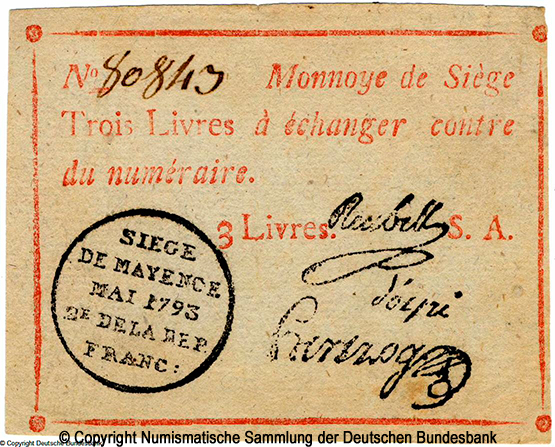 No 80843 Monnoye de Siège
Trois Livres à échanger contre
du numéraire.
3 Livres. Reubell S. A.
SIEGE
DE MAYENCE
MAI 1793
2E DE LA REP.
FRANC:
© Copyright Deutsche Bundesbank
© Copyright Numismatische Sammlung der Deutschen Bundesbank